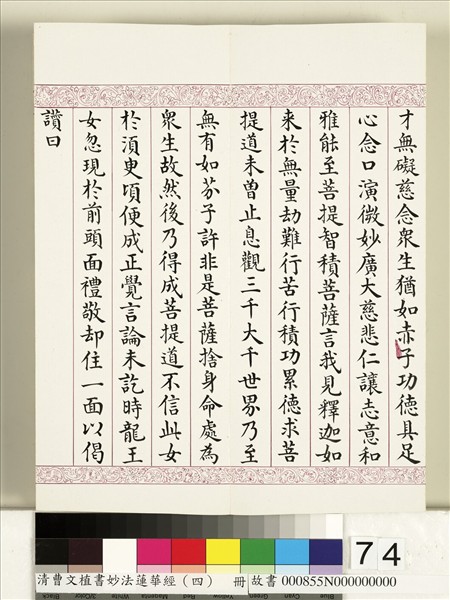 才無礙慈念眾生猶如赤子功德具足
心念口演微妙廣大慈悲仁讓志意和
雅能至菩提智積菩薩言我見釋迦如
來於無量劫難行苦行積功累德求菩
提道未曾止息觀三千大千世界乃至
無有如芥子許非是菩薩捨身命處為
眾生故然後乃得成菩提道不信此女
於須臾頃便成正覺言論未訖時龍王
女忽現於前頭面禮敬却住一面以偈
讚曰
74
清曹文植書妙法蓮華經（四） 冊 故書 000855N000000000